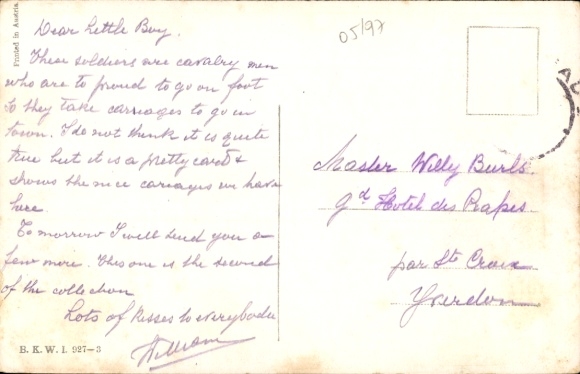 Printed in Austria.
Dear Little Boy.
These soldiers are cavalry men
who are to proud to go on foot
so they take carriages to go in
town. I do not think it is quite
true but it is a pretty card &
shows the nice carriages we have
here.
Tomorrow I will send you a
few more. This one is the second
of the collection
Lots of kisses to everybody
William
B. K. W. I. 927-3
05/97
Master Willy Burls.
Gd Hotel des Rasses
par Ste Croix
Yverdon